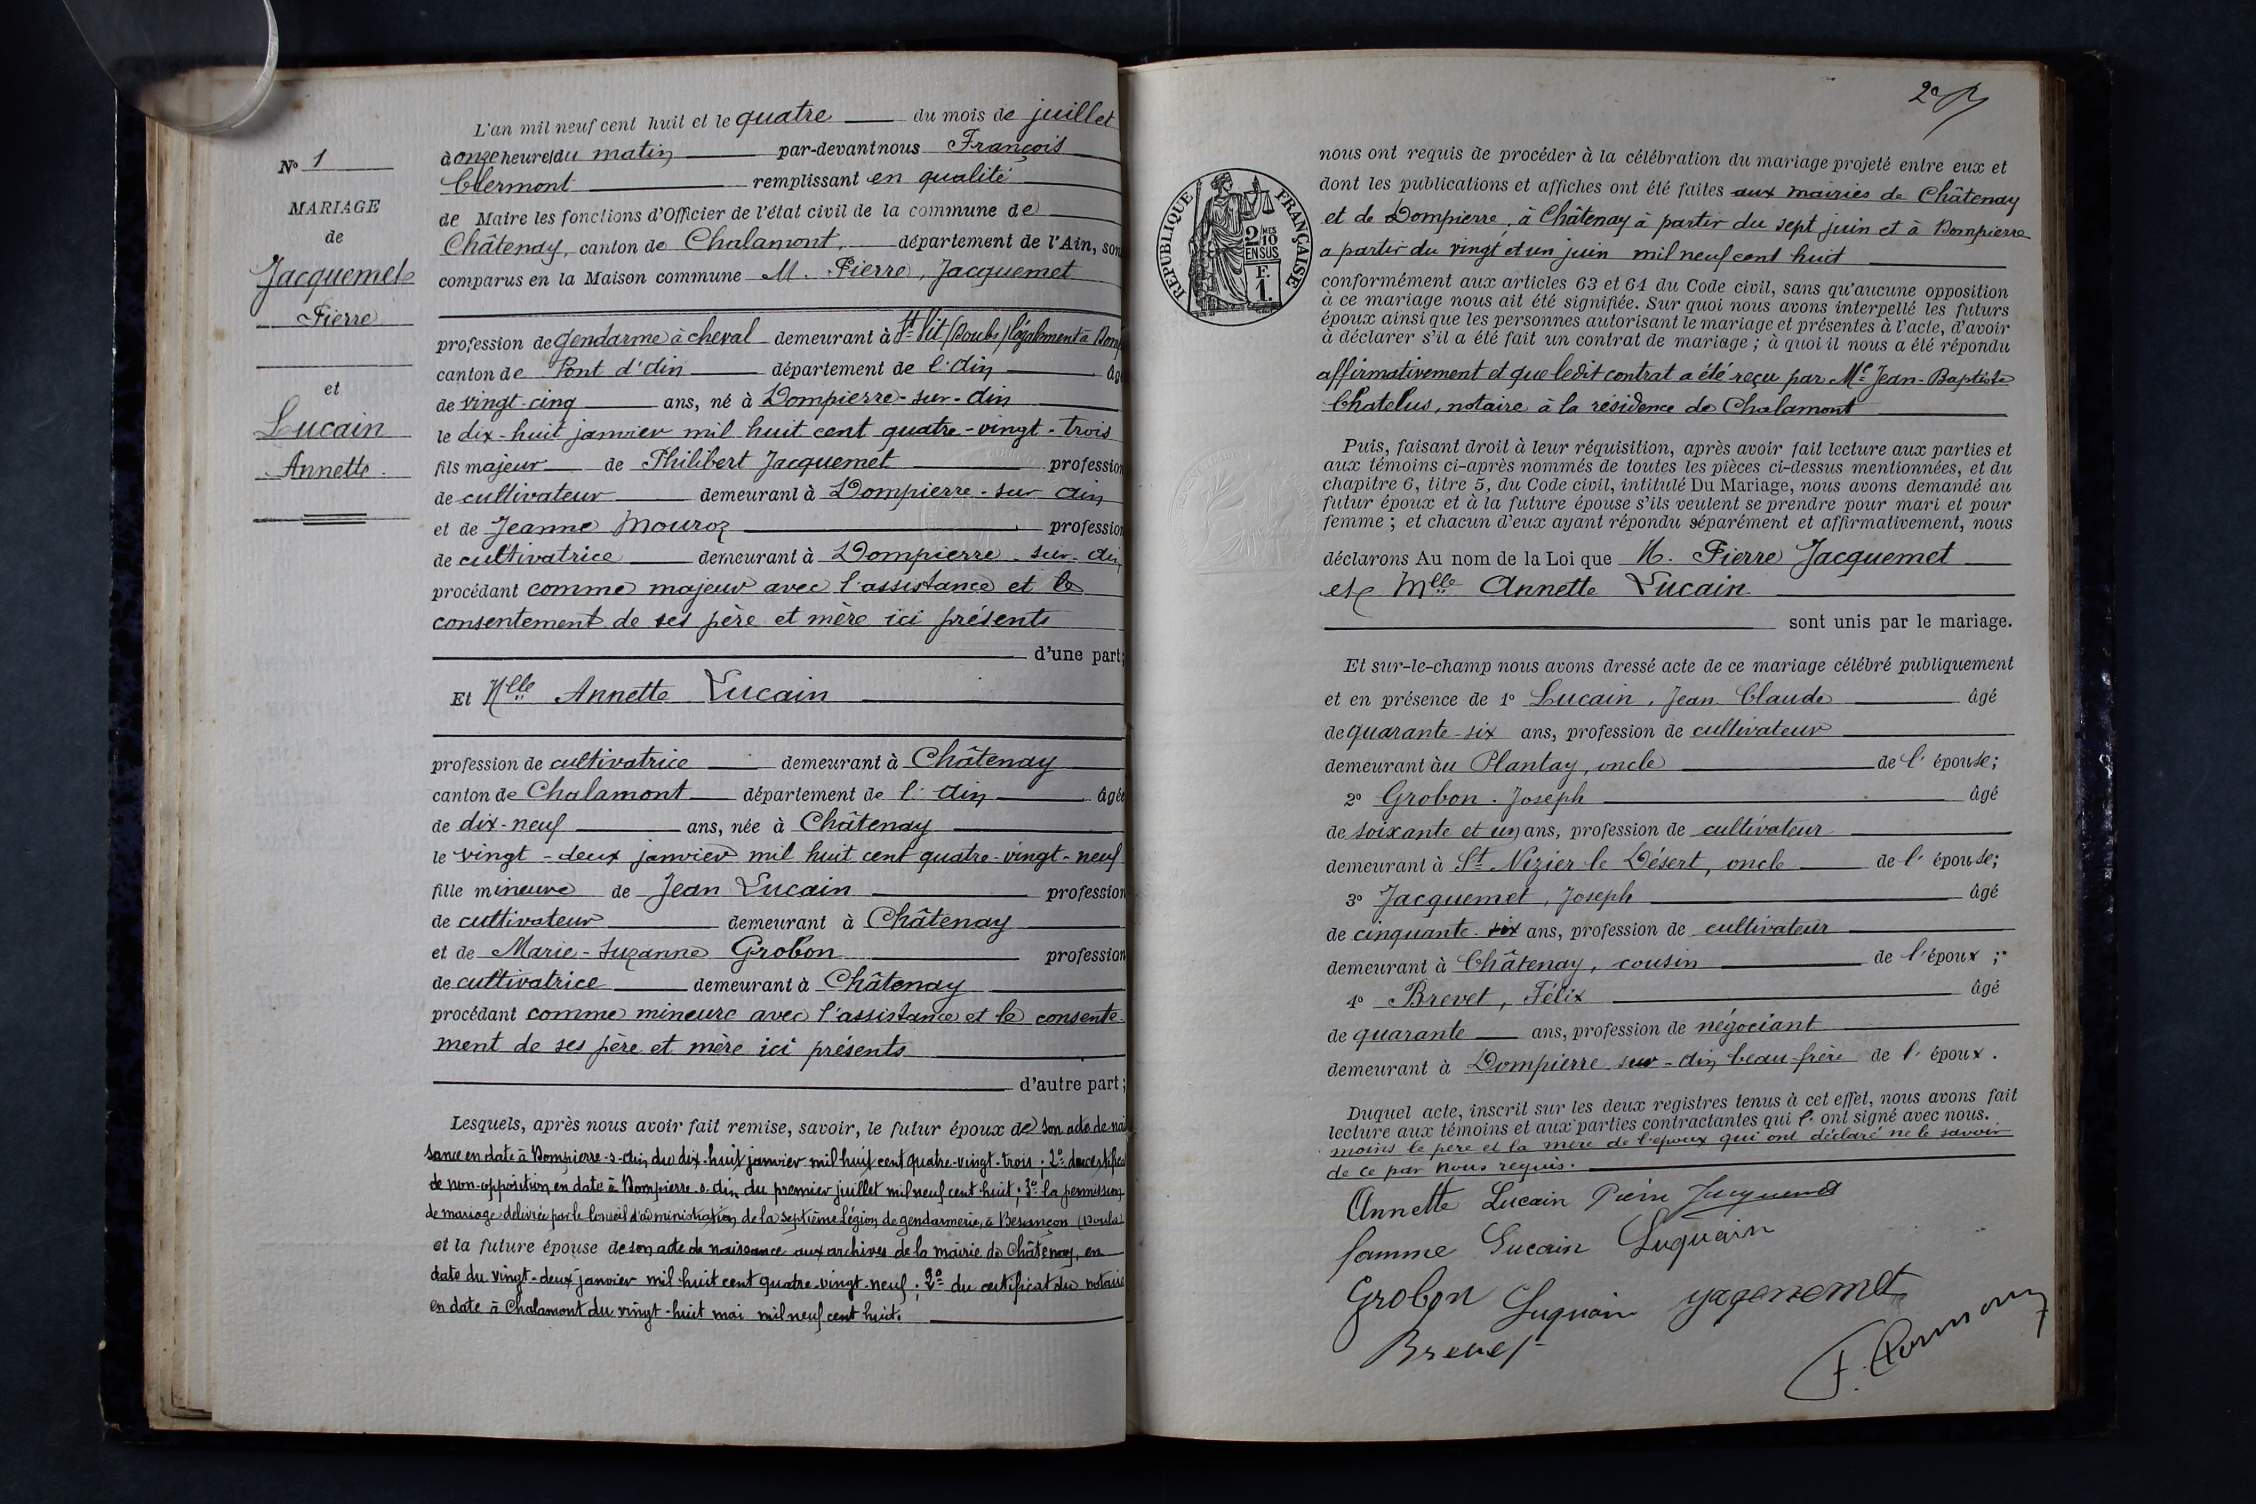 L'an mil neuf cent huit et le quatre du mois de juillet
à onze heures du matin par-devant nous François
Clermont remplissant en qualité
de Maire les fonctions d'Officier de l'état civil de la commune de
Châtenay, canton de Chalamont, département de l'Ain, son
comparus en la Maison commune M. Pierre, Jacquemet
profession de gendarme à cheval demeurant à St Vit (Doubs) légalement à Domp
canton de Pont d'Ain département de l'Ain âgé
de vingt-cinq ans, né à Dompierre-sur-Ain
le dix-huit janvier mil huit cent quatre-vingt-trois
fils majeur de Philibert Jacquemet profession
de cultivateur demeurant à Dompierre-sur-Ain
et de Jeanne Mouroz profession
de cultivatrice demeurant à Dompierre-sur-Ain
procédant comme majeur avec l'assistance et le
consentement de ses père et mère ici présents
d'une part;
Et Mlle Annette Lucain
profession de cultivatrice demeurant à Châtenay
canton de Chalamont département de l'Ain âgée
de dix-neuf ans, née à Châtenay
le vingt-deux janvier mil huit cent quatre-vingt-neuf
fille mineure de Jean Lucain profession
de cultivateur demeurant à Châtenay
et de Marie-Suzanne Grobon profession
de cultivatrice demeurant à Châtenay
procédant comme mineure avec l'assistance et le consente-
ment de ses père et mère ici présents
d'autre part;
Lesquels, après nous avoir fait remise, savoir, le futur époux de son acte de nais
sance en date à Dompierre-s-Ain du dix-huit janvier mil huit cent quatre-vingt-trois; 2° du certificat
de non-opposition en date à Dompierre-s-Ain du premier juillet mil neuf cent huit; 3° la permission
de mariage délivrée par le Conseil d'administration de la septième Légion de gendarmerie, à Besançon (Doubs)
et la future épouse de son acte de naissance aux archives de la mairie de Châtenay, en
date du vingt-deux janvier mil huit cent quatre-vingt-neuf; 2° du certificat du notaire
en date à Chalamont du vingt-huit mai mil neuf cent huit.
N° 1
MARIAGE
de
Jacquemet
Pierre
et
Lucain
Annette
2e
RÉPUBLIQUE FRANÇAISE
2/10 MES
EN SUS
F.
1.
nous ont requis de procéder à la célébration du mariage projeté entre eux et
dont les publications et affiches ont été faites aux mairies de Châtenay
et de Dompierre, à Châtenay à partir du sept juin et à Dompierre
a partir du vingt et un juin mil neuf cent huit
conformément aux articles 63 et 64 du Code civil, sans qu'aucune opposition
à ce mariage nous ait été signifiée. Sur quoi nous avons interpellé les futurs
époux ainsi que les personnes autorisant le mariage et présentes à l'acte, d'avoir
à déclarer s'il a été fait un contrat de mariage; à quoi il nous a été répondu
affirmativement et que ledit contrat a été reçu par Me Jean-Baptiste
Chatelus, notaire à la résidence de Chalamont
Puis, faisant droit à leur réquisition, après avoir fait lecture aux parties et
aux témoins ci-après nommés de toutes les pièces ci-dessus mentionnées, et du
chapitre 6, titre 5, du Code civil, intitulé Du Mariage, nous avons demandé au
futur époux et à la future épouse s'ils veulent se prendre pour mari et pour
femme; et chacun d'eux ayant répondu séparément et affirmativement, nous
déclarons Au nom de la Loi que M. Pierre Jacquemet
et Mlle Annette Lucain
sont unis par le mariage.
Et sur-le-champ nous avons dressé acte de ce mariage célébré publiquement
et en présence de 1° Lucain, Jean Claude âgé
de quarante-six ans, profession de cultivateur
demeurant au Plantay, oncle de l'épouse;
2° Grobon. Joseph âgé
de soixante et un ans, profession de cultivateur
demeurant à St Nizier le Désert, oncle de l'épouse;
3° Jacquemet, Joseph âgé
de cinquante-six ans, profession de cultivateur
demeurant à Châtenay, cousin de l'époux;
4° Brevet, Félix âgé
de quarante ans, profession de négociant
demeurant à Dompierre-sur-Ain, beau-frère de l'époux.
Duquel acte, inscrit sur les deux registres tenus à cet effet, nous avons fait
lecture aux témoins et aux parties contractantes qui l'ont signé avec nous.
moins le père et la mère de l'époux qui ont déclaré ne le savoir
de ce par nous requis.
Annette Lucain Pierre Jacquemet
famme Lucain Luquain
Grobon Luquain yaqenemet
Brevet